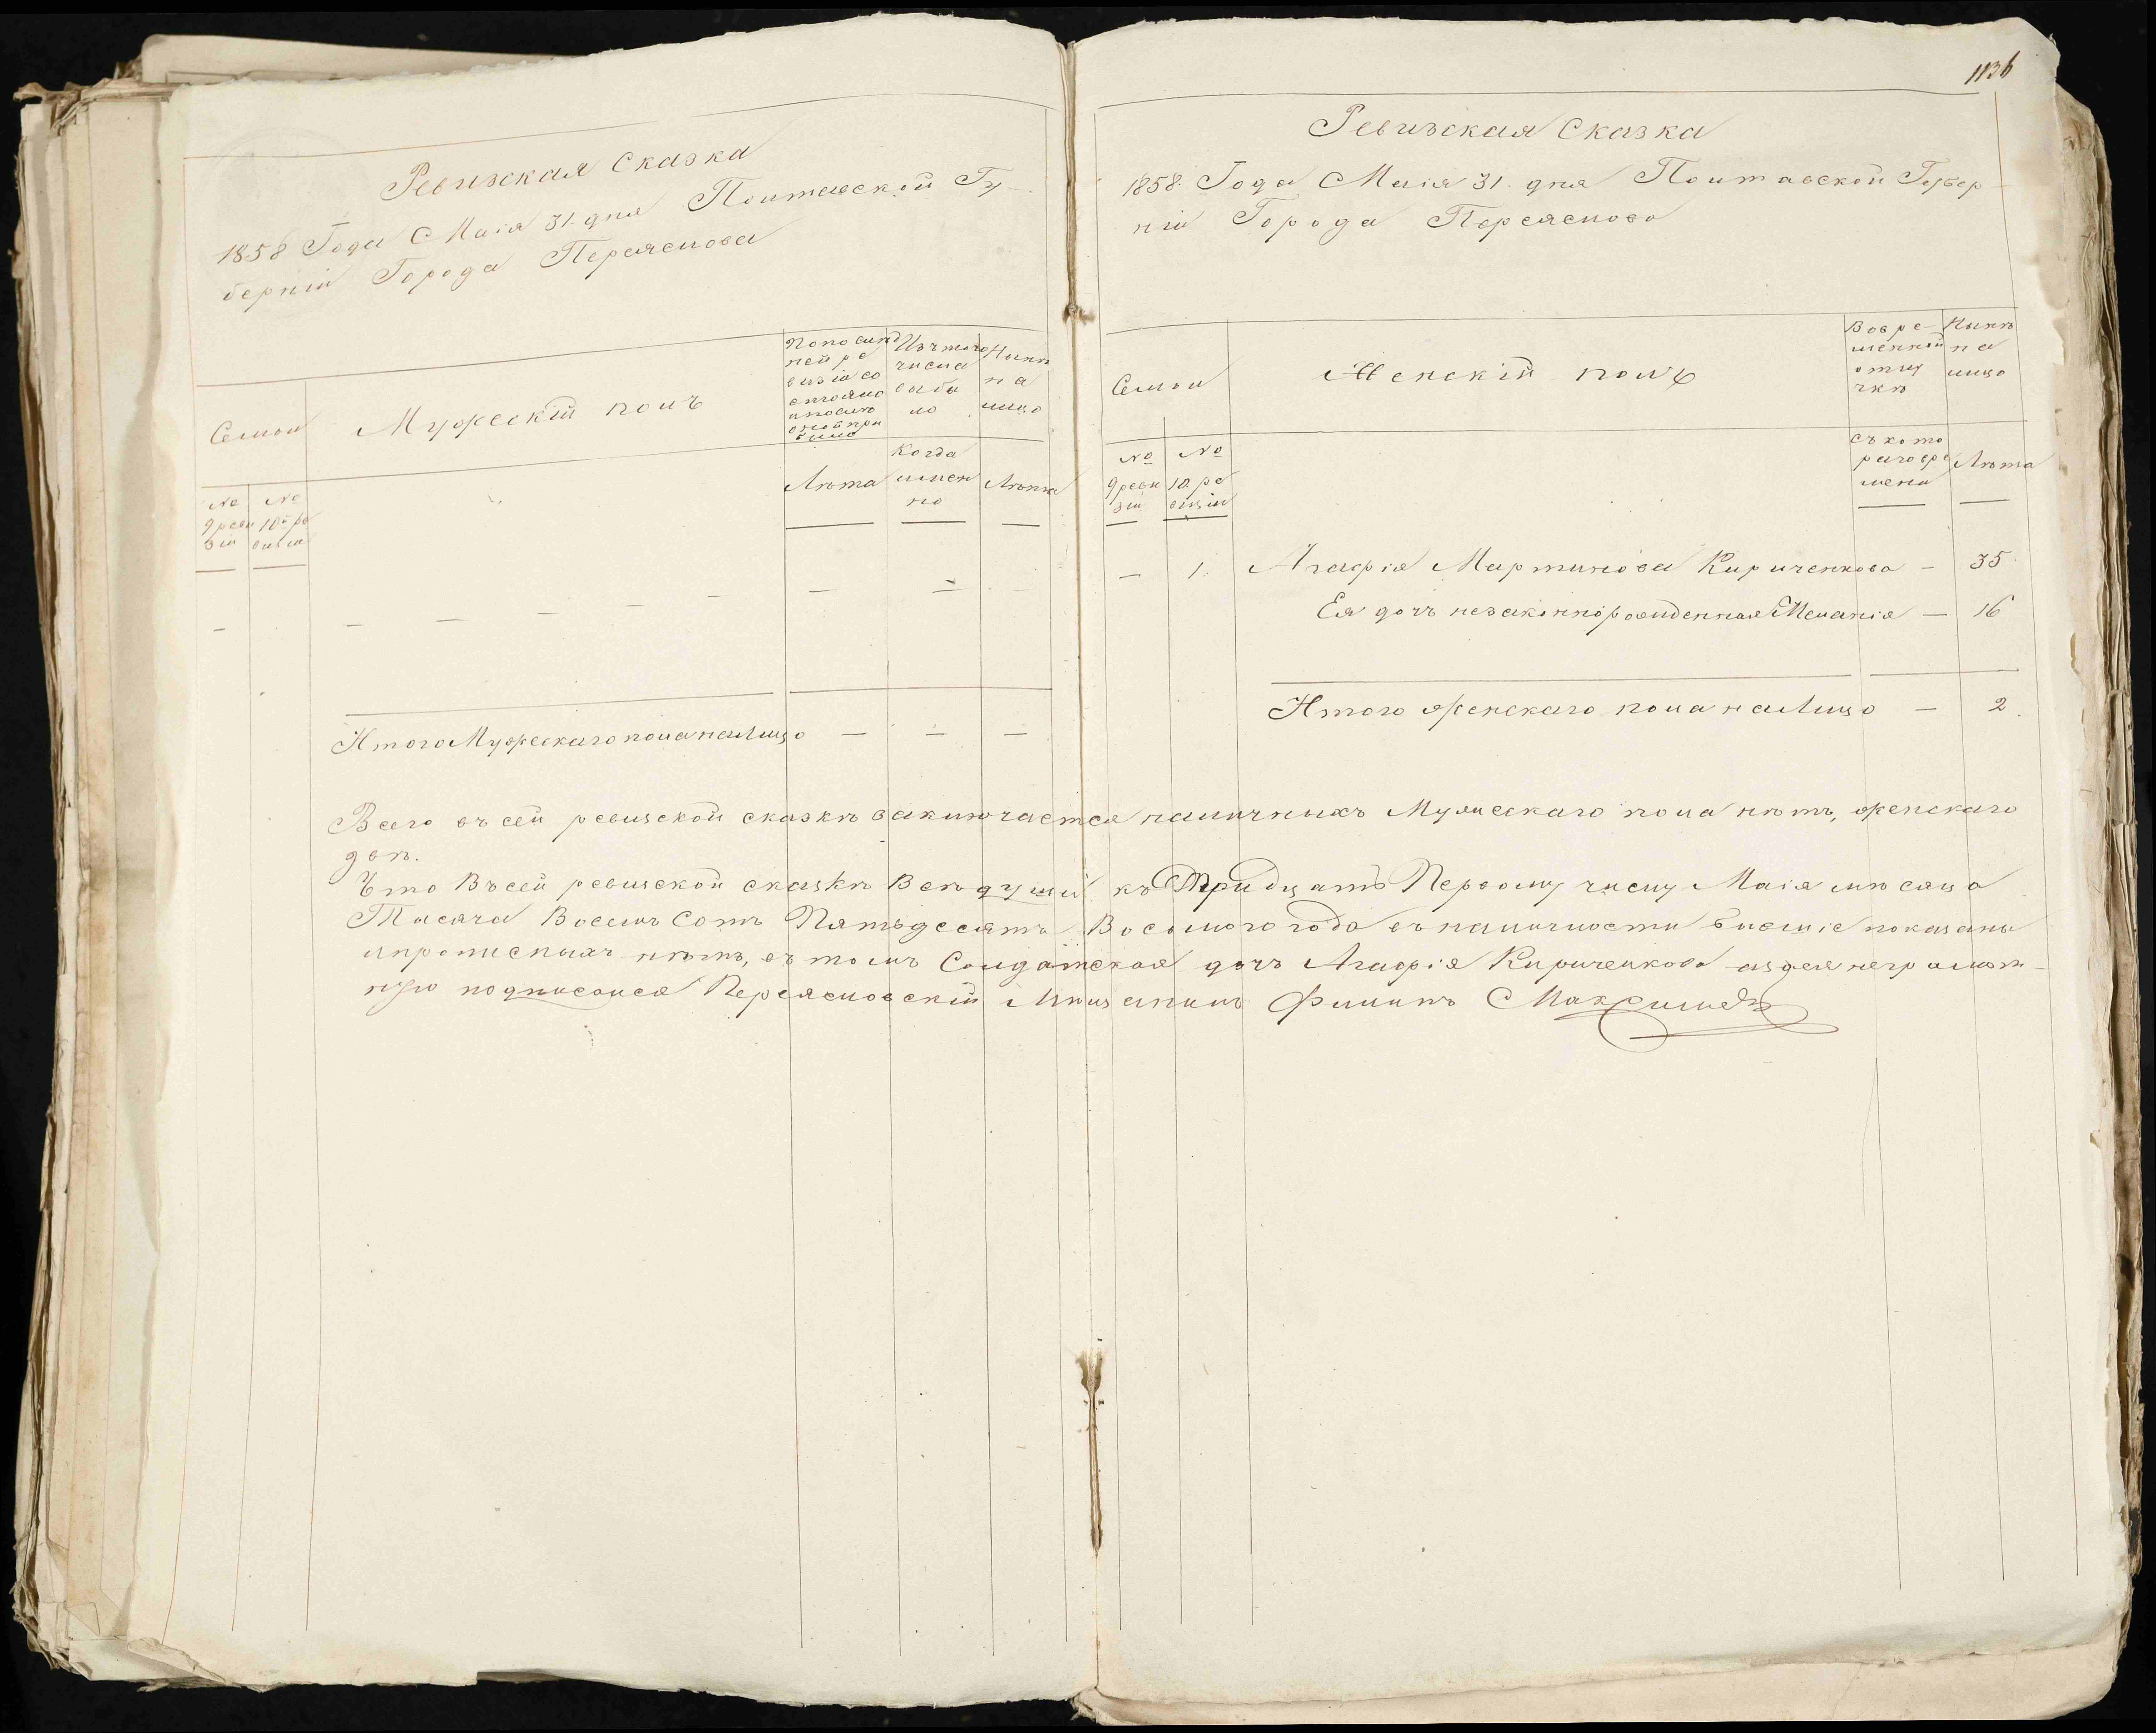 1136
Ревизская Сказка
1858 Года Маія 31. дня Полтавской Гу-
берніи Города Переяслова
Семьи
Мужескій полъ
По послѣд
ней ре
визіи со
стояло
и послѣ
оной при
было
Изъ того
числа
выбы
ло
Нынѣ
на
лицо
Лѣта
Когда
имен
но
Лѣта
№
9 реви
зіи
№
10й ре
визіи
— — — — — — — —
Итого Мужескаго пола на Лицо — — —
Ревизская Сказка
1858. Года Маія 31. дня Полтавской Губер-
ніи Города Переяслова
Семьи
Женскій полъ
Во вре-
менной
отлу
чкѣ
Нынѣ
на
лицо
№
9 реви
зіи
№
10. ре
визіи
Съ кото
раго вре
мени
Лѣта
— 1. Агафія Мартинова Кириченкова — 35.
Ея дочь незаконнорожденная Меланія — 16
Итого женскаго пола на Лицо — 2.
Всего въ сей ревизской сказкѣ заключается наличныхъ Мужескаго пола нѣтъ, женскаго
двѣ.
Что Въ сей ревизской сказкѣ Всѣ души къ Тридцать Первому числу Маія мѣсяца
Тысяча Восемь Сотъ Пятьдесятъ Восьмого года въ наличности бывшіе показаны
и прописныхъ нѣтъ, въ томъ Солдатская дочь Агафія Кириченкова а за нея неграмот-
ную подписался Переясловскій Мѣщанинъ Филипъ